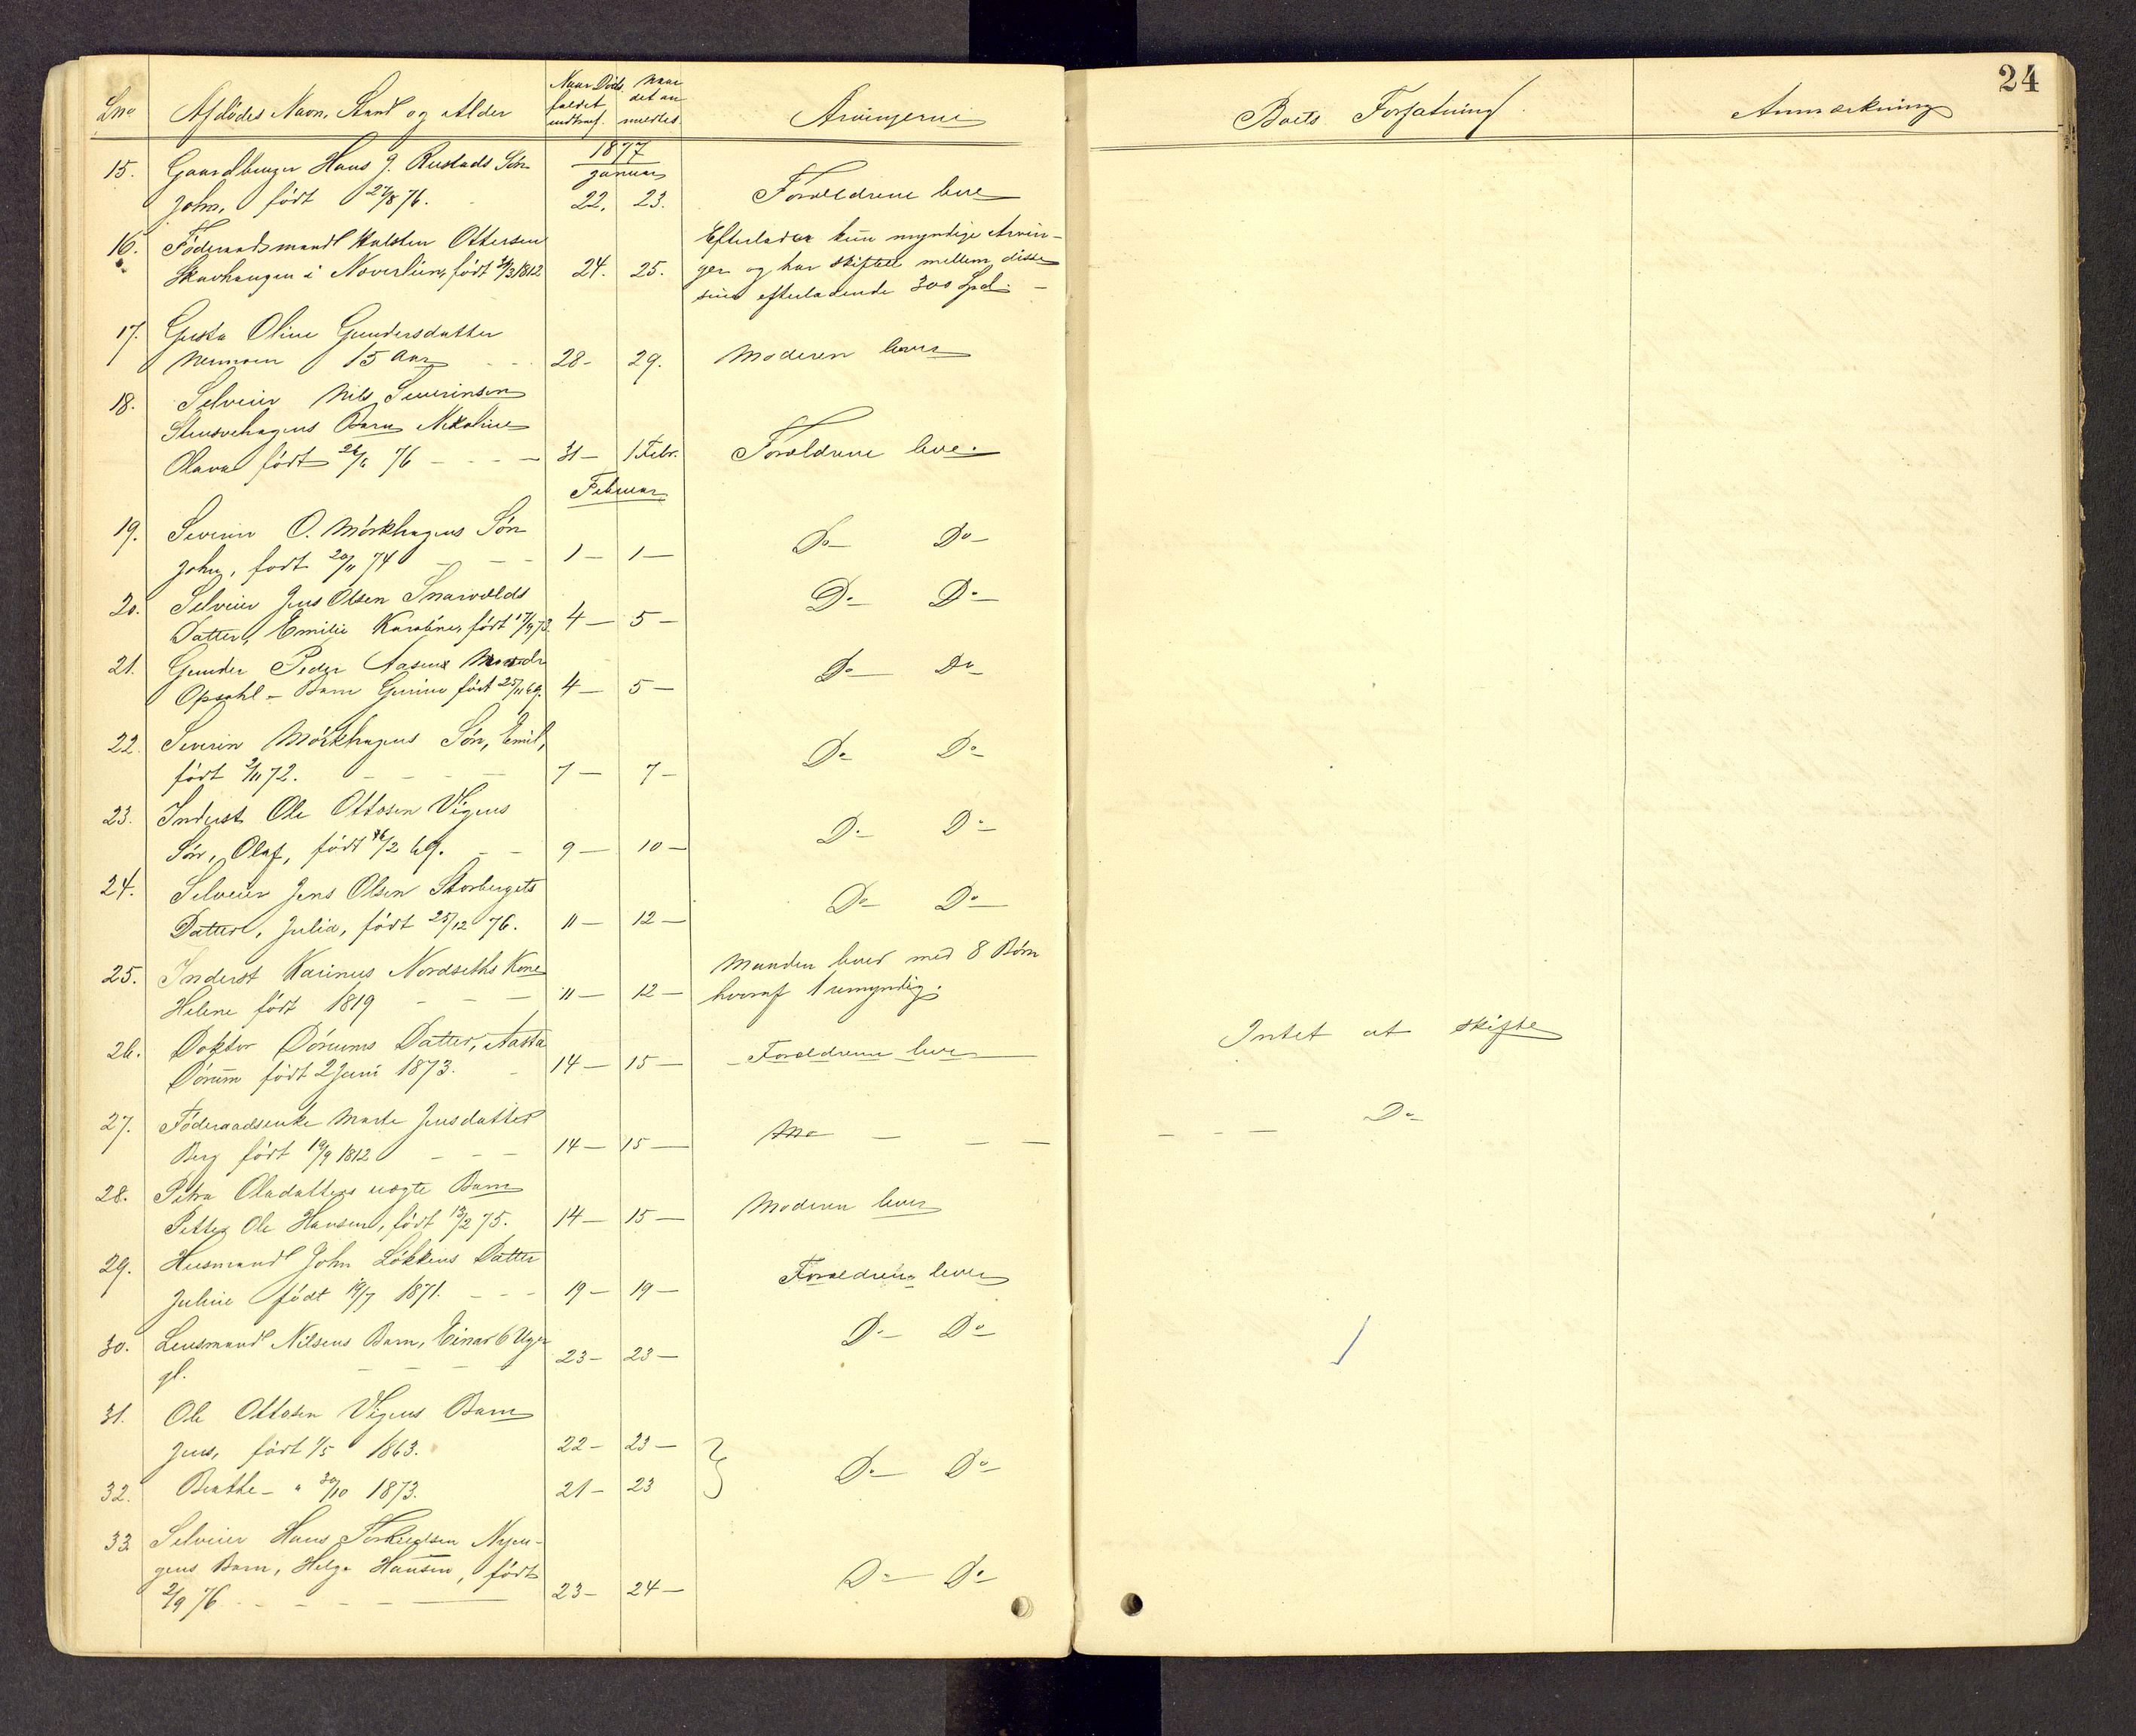 24
Lno Afdödes Navn, Stand og Alder Naar Döds- faldet indtraf. Naar det an- meldtes Arvingerne Boets Forfatning. Anmærkning
1877
Januar
15. Gaardbruger Hans J. Rustads Sön
John, født 27/8 76. 22. 23. Forældrene leve
16. Föderaadsmand Halsten Ottersen Efterlader kun myndige Arvin-
Skavhaugen i Noverlien, født 3/1812 24. 25. ger og har skiftet mellem disse
sine efterladende 300 Spd. -
17. Gusta Oline Gundersdatter
Mermoen 15 Aar - - 28- 29. Moderen lever
18. Selveier Nils Severinsen
Stensvehagens Barn Nikoline
Olava født 26/6 76 - - - - 31- 1 Febr. Forældrene leve.
Februar
19. Severin O. Mörkhagens Sön
John, født 20/11 74 - - - 1- 1- Do- Do-
20. Selveier Jens Olsen Snarvolds
Datter, Emilie Karoline, født 17/9 73. 4- 5- Do- Do-
21. Gunder Peder Aasens
Opsahl - Barn Gurine født 25/11 69. 4- 5- Do- Do-
22. Severin Mörkhagens Sön, Emil,
født 2/11 72. - - - - 7- 7- Do- Do-
23. Inderst Ole Ottosen Vigens
Sön, Olaf, født /2 69. - - 9- 10- Do- Do-
24. Selveier Jens Olsen Storbergets
Datter, Julia, født 25/12 76. 11- 12- Do- Do-
25. Inderst Karinus Nordseths Kone Manden lever med 8 Börn
Helene født 1819 - - - 11- 12- hvoraf 1 umyndig. Intet at skifte
26. Doktor Dörums Datter, Aasta
Dörum født 2 Juni 1873. - 14- 15- - Forældrene lever
27. Föderaadsenke Marte Jensdatter
Berg født 19/9 1812 - - - 14- 15- - - - - - - Do-
28. Petra Olsdatters uægte Barn
Petter Ole Hansen, født 13/2 75. 14- 15- Moderen lever
29. Husmand John Lökkens Datter
Juline født 19/7 1871. - - - 19- 19- Forældrene lever
30. Lensmand Nilsens Barn, Einar 6 Uger
gl. - - - 23- 23- Do- Do-
31. Ole Ottosen Vigens Barn
Jens, født 1/5 1863. 22- 23-
32. Beathe - " 30/10 1873. 21- 23 Do- Do-
33 Selveier Hans Nyen-
gens Barn, Helga Hansen, født
2/9 76 - - - - 23- 24- Do- Do-